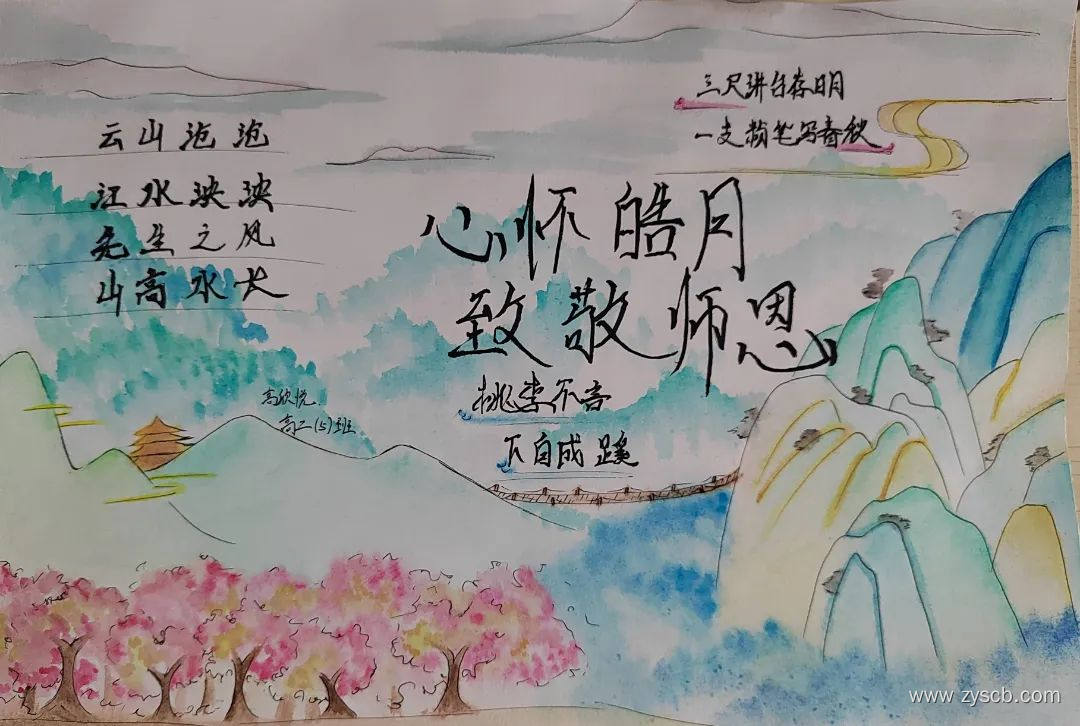 云山沧沧
江水泱泱
先生之风
山高水长
三尺讲台存日月
一支粉笔写春秋
心怀皓月
致敬师恩
桃李不言
下自成蹊
高欣悦
高二(5)班
www.zyscb.com